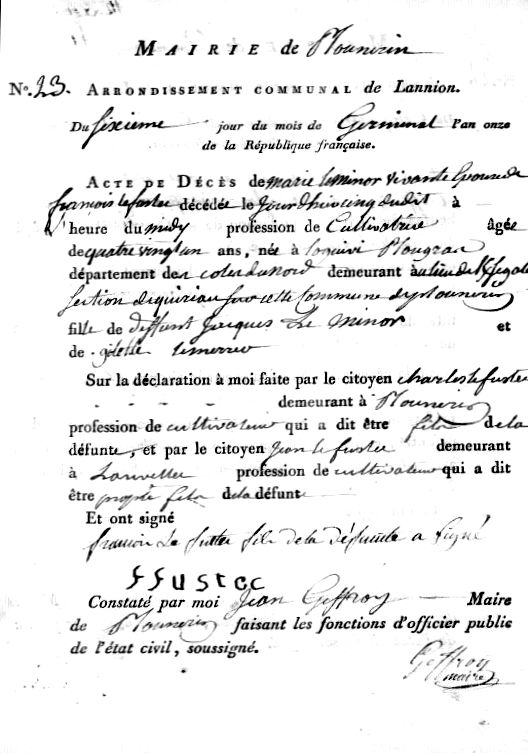 MAIRIE de Plounerin
No. 23. ARRONDISSEMENT COMMUNAL de Lannion.
Du sixieme jour du mois de Germinal l'an onze
de la République française.
ACTE DE DÉCÈS de marie leminor vivante Epouse de
francois le fustec décédée le jour d'hier cinq dudit à
l'heure du midy profession de Cultivatrice âgée
de quatre vingt un ans, née à loquivi Plougras
département des cotes du Nord demeurant au lieu de
section de sur cette Commune de plounerin
fille de deffunt jacques Le minor et
de gilette lemerrer
Sur la déclaration à moi faite par le citoyen charles le fustec
demeurant à Plounerin
profession de cultivateur qui a dit être fils de la
défunte, et par le citoyen jean le fustec demeurant
à Lanvellec profession de cultivateur qui a dit
être propre fils de la défunte
Et ont signé
francois Le futtec fils de la défunte a signé
FFUSTEC
Constaté par moi Jean Geffroy Maire
de Plounerin faisant les fonctions d'officier public
de l'état civil, soussigné.
Geffroy
maire